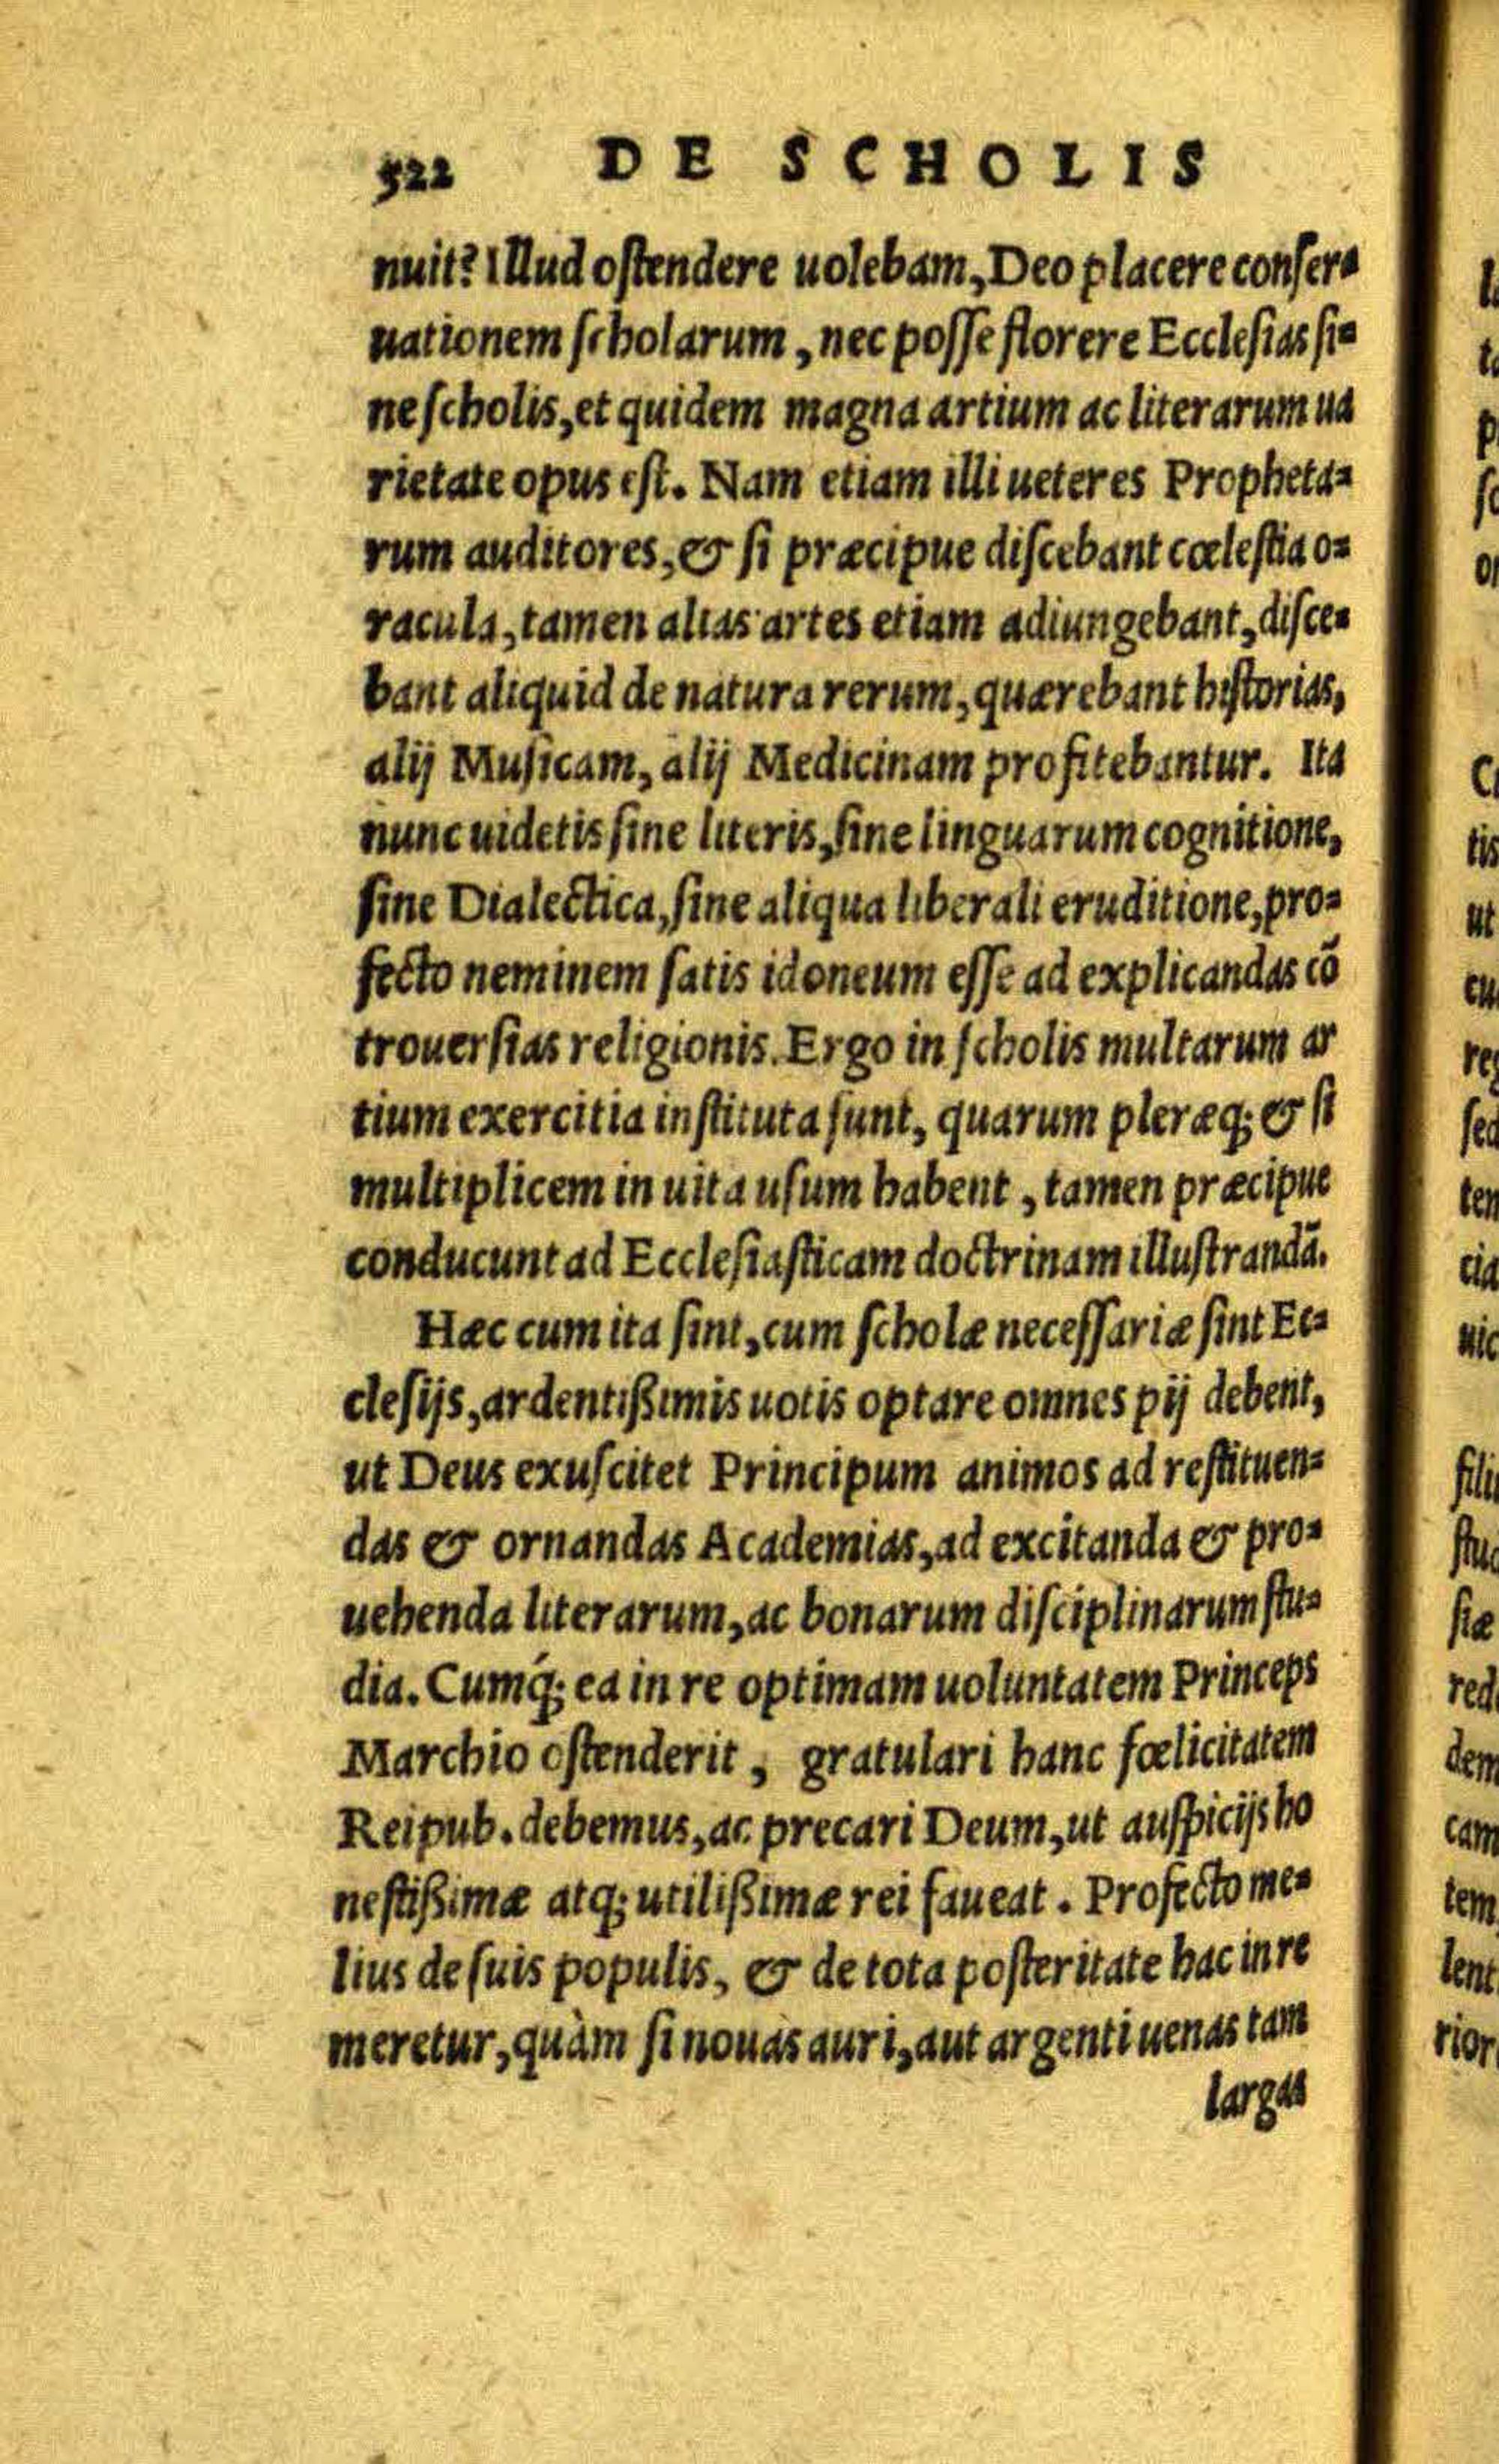 522 DE SCHOLIS
nuit? Illud ostendere uolebam, Deo placere conser=
uationem scholarum, nec posse florere Ecclesias si=
ne scholis, et quidem magna artium ac literarum ua
rietate opus est. Nam etiam illi ueteres Propheta=
rum auditores, & si præcipue discebant cœlestia o=
racula, tamen alias artes etiam adiungebant, disce=
bant aliquid de natura rerum, quærebant historias,
alij Musicam, alij Medicinam profitebantur. Ita
nunc uidetis sine literis, sine linguarum cognitione,
sine Dialectica, sine aliqua liberali eruditione, pro=
fecto neminem satis idoneum esse ad explicandas cō
trouersias religionis. Ergo in scholis multarum ar
tium exercitia instituta sunt, quarum pleræq; & si
multiplicem in uita usum habent, tamen præcipue
conducunt ad Ecclesiasticam doctrinam illustrandā.
Hæc cum ita sint, cum scholæ necessariæ sint Ec=
clesijs, ardentißimis uotis optare omnes pij debent,
ut Deus exuscitet Principum animos ad restituen=
das & ornandas Academias, ad excitanda & pro=
uehenda literarum, ac bonarum disciplinarum stu=
dia. Cumq́; ea in re optimam uoluntatem Princeps
Marchio ostenderit, gratulari hanc fœlicitatem
Reipub. debemus, ac precari Deum, ut auspicijs ho
nestißimæ atq; utilißimæ rei faueat. Profecto me=
lius de suis populis, & de tota posteritate hac in re
meretur, quàm si nouas auri, aut argenti uenas tam
largas